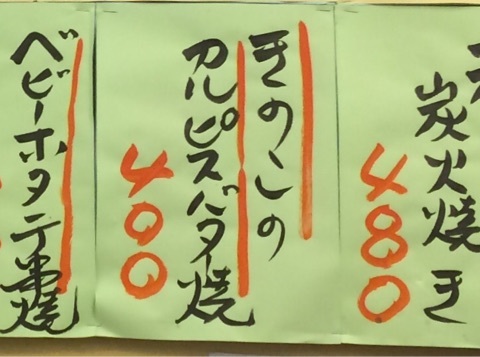 炭火焼き
480
きのこの
カルピスバター焼
400
ベビーホタテ串焼